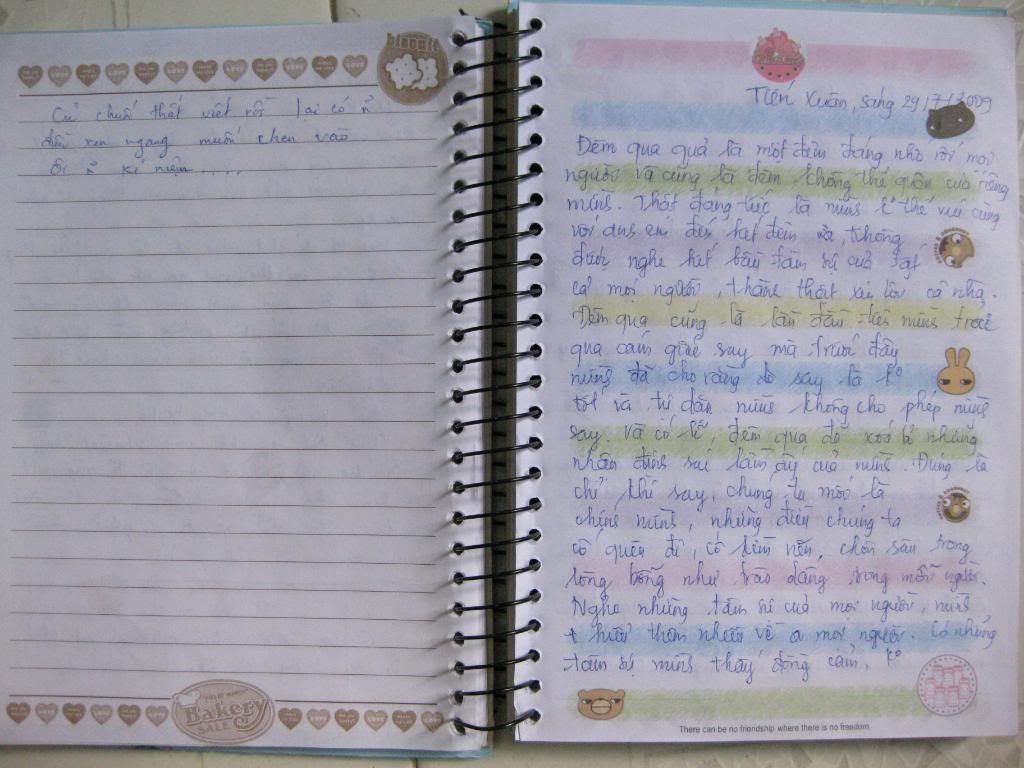 biscuit
Củ chuối thật viết rồi lại có n
điều xen ngang muốn chen vào
kỉ niệm ....
Bakery
SALE
Tiến Xuân, sáng 29/7/2009
Đêm qua quả là một đêm đáng nhớ với mọi
người và cũng là đêm không thể quên của riêng
mình. Thật đáng tiếc là mình k thể vui cùng
với anh em đến hết đêm , không
được nghe hết bầu tâm sự của tất
cả mọi người, thành thật xin lỗi cả nhà.
Đêm qua cũng là lần đầu tiên mình trải
qua cảm giác say mà trước đây
mình đã cho rằng đó say là k
tốt và tự dặn mình không cho phép mình
say. Và có lẽ, đêm qua đã xoá bỏ những
nhận định sai lầm ấy của mình. Đúng là
chỉ khi say, chúng ta mới là
chính mình, những điều chúng ta
cố quên đi, cố kìm nén, chôn sâu trong
lòng bỗng như trào dâng trong mỗi người.
Nghe những tâm sự của mọi người, mình
hiểu thêm nhiều về mọi người. Có những
tâm sự mình thấy đồng cảm, k
There can be no friendship where there is no freedom